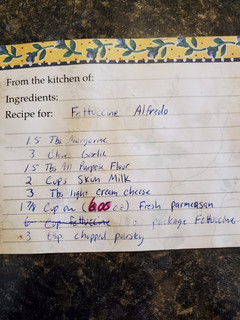 From the kitchen of:
Ingredients:
Recipe for: Fettuccine Alfredo
1.5 Tbs Margarine
3 Clove Garlic
1.5 Tbs All Purpose Flour
2 Cups Skim Milk
3 Tbs light cream cheese
1 3/4 Cup or (6.05 oz) Fresh parmeasan
6 Cup fettuccine package Fettuccine
3 tsp chopped parsley